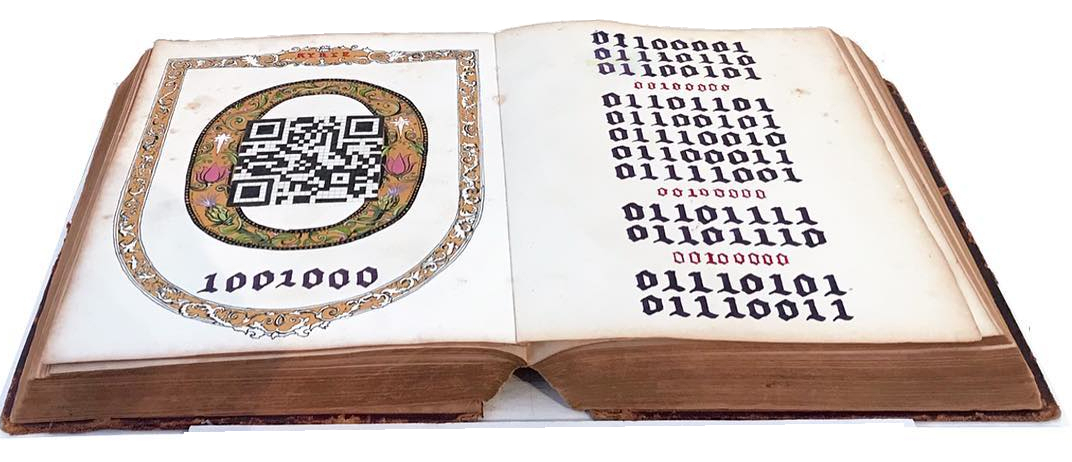 KYRIE
0
1001000
01100001
01110110
01100101
00100000
01101101
01100101
01110010
01100011
01111001
00100000
01101111
01101110
00100000
01110101
01110011